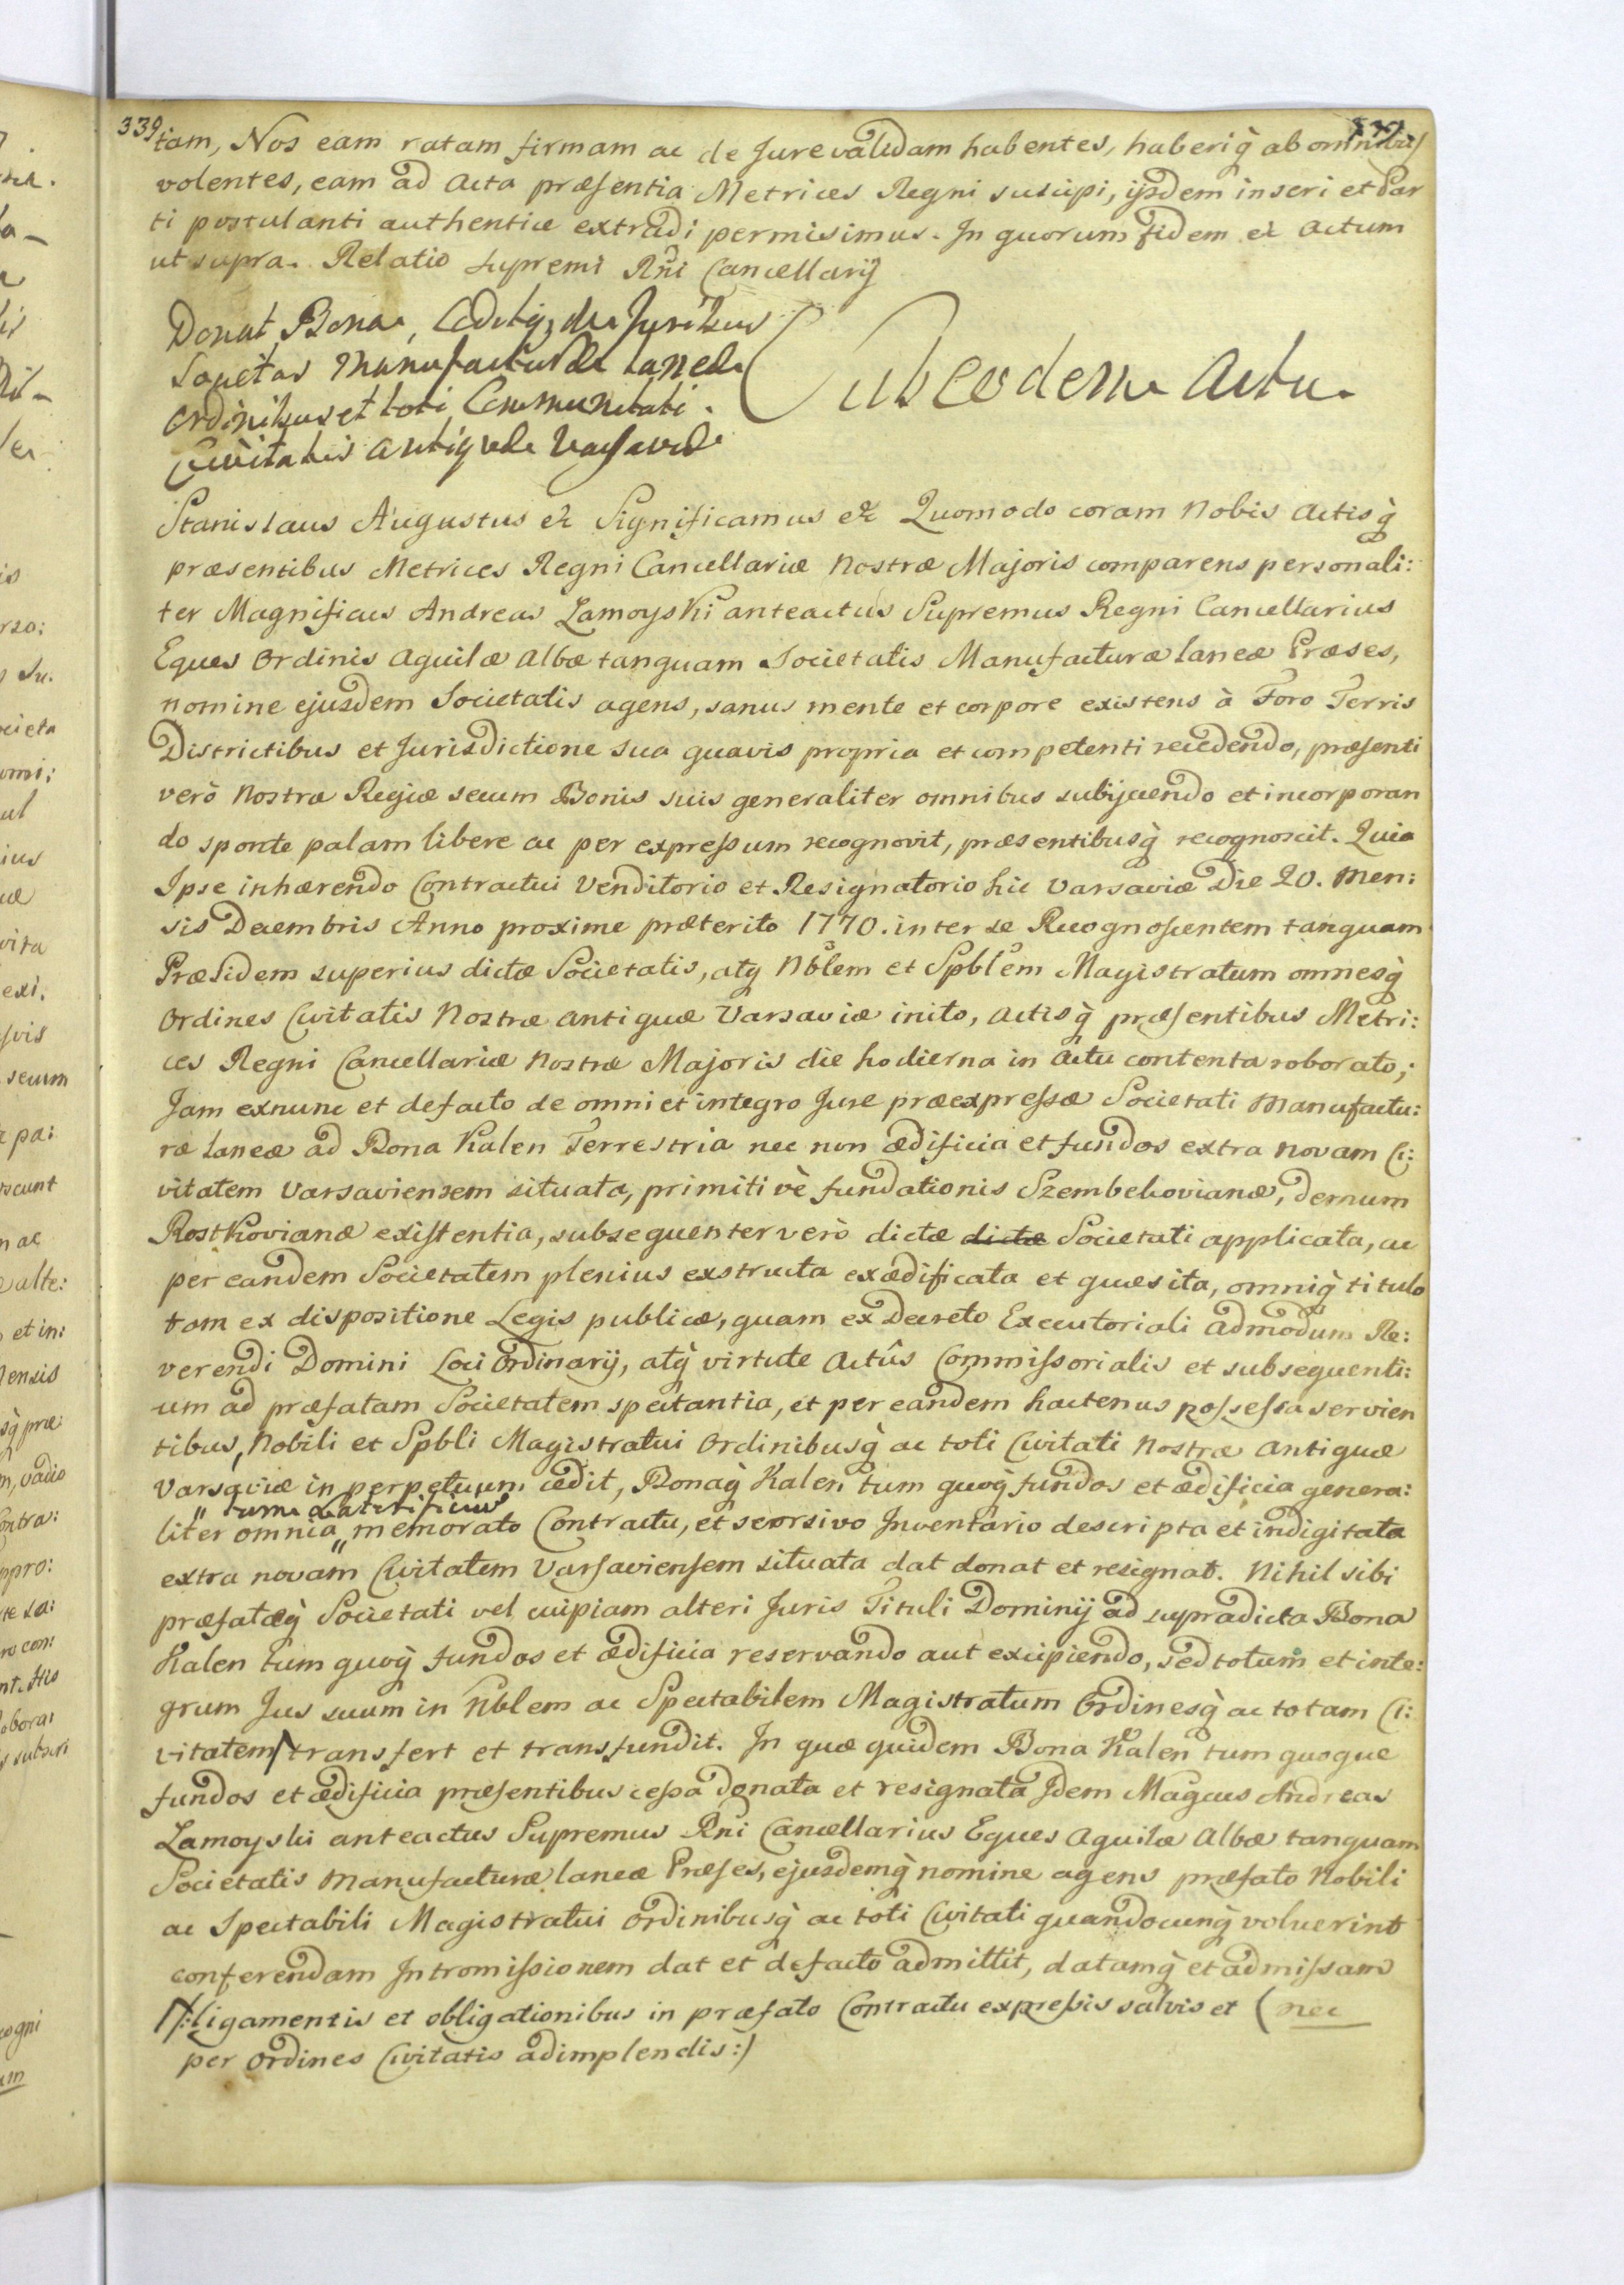 339
tam, Nos eam ratam firmam ac de Jure validam habentes, haberiq̀ ab omnibus
volentes, eam ad Acta præsentia Metrices Regni suscipi, ijsdem inseri et Par
ti postulanti authentice extradi permisimus. In quorum fidem ec̃ Actum
ut supra. Relatio supremi Rñi Cancellarij
Donat Bona, Ceditq, de Juribus
Societas Manufacturæ Laneæ
Ordinibus et toti Communitati
Civitatis Antiquæ Varsaviæ
Sub eodem Actu.
Stanislaus Augustus ec̃ Significamus ec̃ Quomodo coram Nobis Actisq̀
præsentibus Metrices Regni Cancellariæ Nostræ Majoris comparens personali:
ter Magnificus Andreas Zamoyski anteactus Supremus Regni Cancellarius
Eques Ordinis Aquilæ Albæ tanquam Societatis Manufacturæ Laneæ Præses,
nomine ejusdem Societatis agens, sanus mente et corpore existens à Foro Terris
Districtibus et Jurisdictione sua quavis propria et competenti recedendo, præsenti
verò Nostræ Regiæ secum Bonis suis generaliter omnibus subijciendo et incorporan
do sponte palam libere ac per expressum recognovit, præsentibusq̀ recognoscit. Quia
Ipse inhærendo Contractui Venditorio et Resignatorio hic Varsaviæ Die 20. Men:
sis Decembris Anno proxime præterito 1770. inter se Recognoscentem tanquam
Præsidem superius dictæ Societatis, atq̀ Nblem et Spblem Magistratum omnesq̀
Ordines Civitatis Nostræ Antiquæ Varsaviæ inito, Actisq̀ præsentibus Metri:
ces Regni Cancellariæ Nostræ Majoris die hodierna in Actu contenta roborato;
Jam exnunc et defacto de omni et integro Jure præexpressæ Societati Manufactu:
ræ Laneæ ad Bona Kalen Terrestria nec non ædificia et fundos extra Novam Ci:
vitatem Varsaviensem situata, primitivè fundationis Szembekovianæ, demum
Rostkovianæ existentia, subsequenter verò dictæ dictæ Societati applicata, ac
per eandem Societatem plenius exstructa exædificata et quæsita, omniq̀ titulo
tam ex dispositione Legis publicæ, quam ex Decreto Executoriali admodum Re:
verendi Domini Loci Ordinarij, atq̀ virtute Actûs Commissorialis et subsequenti:
um ad præfatam Societatem spectantia, et per eandem hactenus possessa servien
tibus, Nobili et Spbli Magistratui Ordinibusq̀ ac toti Civitati Nostræ Antiquæ
Varsaviæ in perpetuum cedit, Bonaq̀ Kalen tum quoq̀ fundos et ædificia genera:
" tum Laterificium
liter omnia " memorato Contractu, et seorsivo Inventario descripta et indigitata
extra novam Civitatem Varsaviensem situata dat donat et resignat. Nihil sibi
præfatæq̀ Societati vel cuipiam alteri Juris Tituli Dominij ad supradicta Bona
Kalen tum quoq̀ fundos et ædificia reservando aut excipiendo, sed totum et inte:
grum Jus suum in Nblem ac Spectabilem Magistratum Ordinesq̀ ac totam Ci:
vitatem/ transfert et transfundit. In quæ quidem Bona Kalen tum quoque
fundos et ædificia præsentibus cessa donata et resignata Idem Magcus Andreas
Zamoyski anteactus Supremus Rni Cancellarius Eques Aquilæ Albæ tanquam
Societatis Manufacturæ laneæ Præses, ejusdemq̀ nomine agens præfato Nobili
ac Spectabili Magistratui Ordinibusq̀ ac toti Civitati quandocunq̀ voluerint
conferendam Intromissionem dat et defacto admittit, datamq̀ et admissam
/:ligamentis et obligationibus in præfato Contractu expressis salvis et (nec
per Ordines Civitatis adimplendis:)